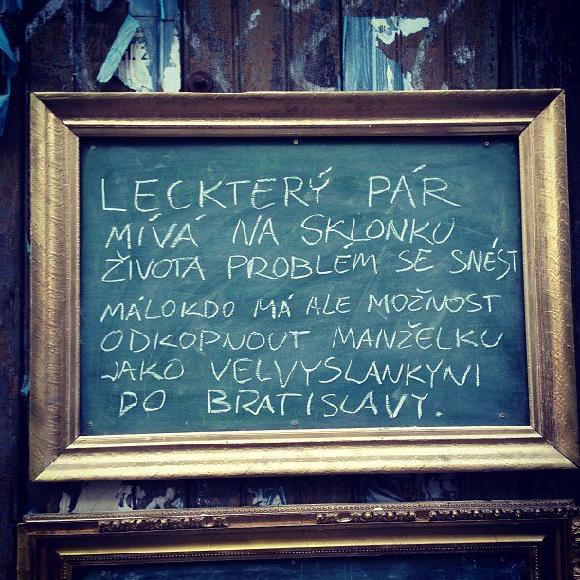 LECKTERÝ PÁR
MÍVÁ NA SKLONKU
ŽIVOTA PROBLÉM SE SNÉST
MÁLOKDO MÁ ALE MOŽNOST
ODKOPNOUT MANŽELKU
JAKO VELVYSLANKYNI
DO BRATISLAVY.